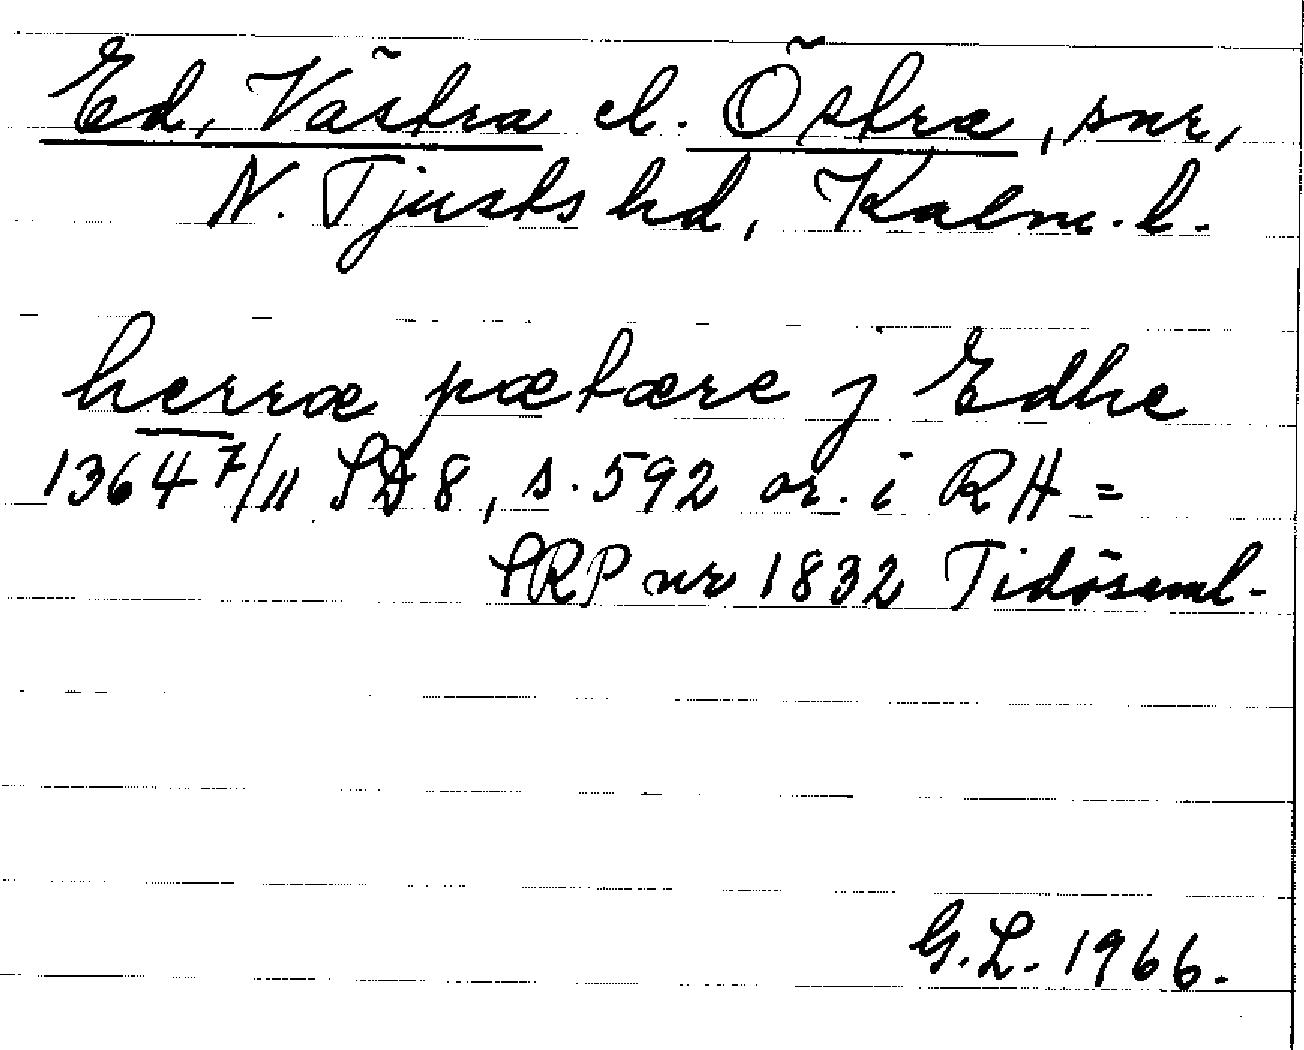 Ed, Västra el. Östra, snr,
N. Tjusts hd, Kalm. l.
herræ pætære j Edhe
1364 7/11 SD 8, s. 592 or. i RA =
SRP nr 1832 Tidösaml.
G.L. 1966.